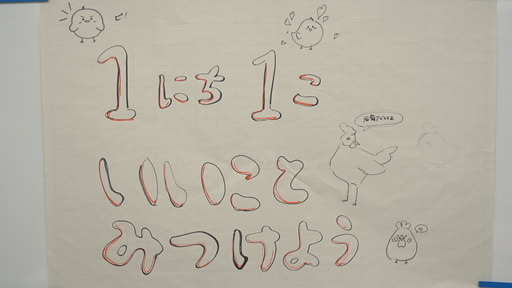 1にち1こ
いいこと
みつけよう